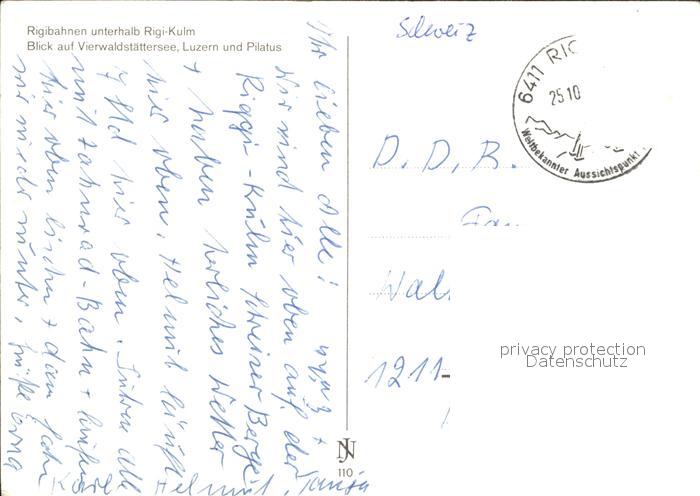 Rigibahnen unterhalb Rigi-Kulm
Blick auf Vierwaldstättersee, Luzern und Pilatus
Ihr lieben Alle!
Wir sind hier oben auf der
Riggi-Kulm Schweizer Berge
+ haben herliches Wetter
hier oben. Helmut läuft
hier oben.
mit Zahnrad-Bahn +
hier oben + dann
wir wieder runter. Grüße Erna
Karl Helmut, Tanja
N
J
110
Schweiz
6411 RIG
25.10
Weltbekannter Aussichtspunkt
D. D. R.
Wal
1211-
privacy protection
Datenschutz